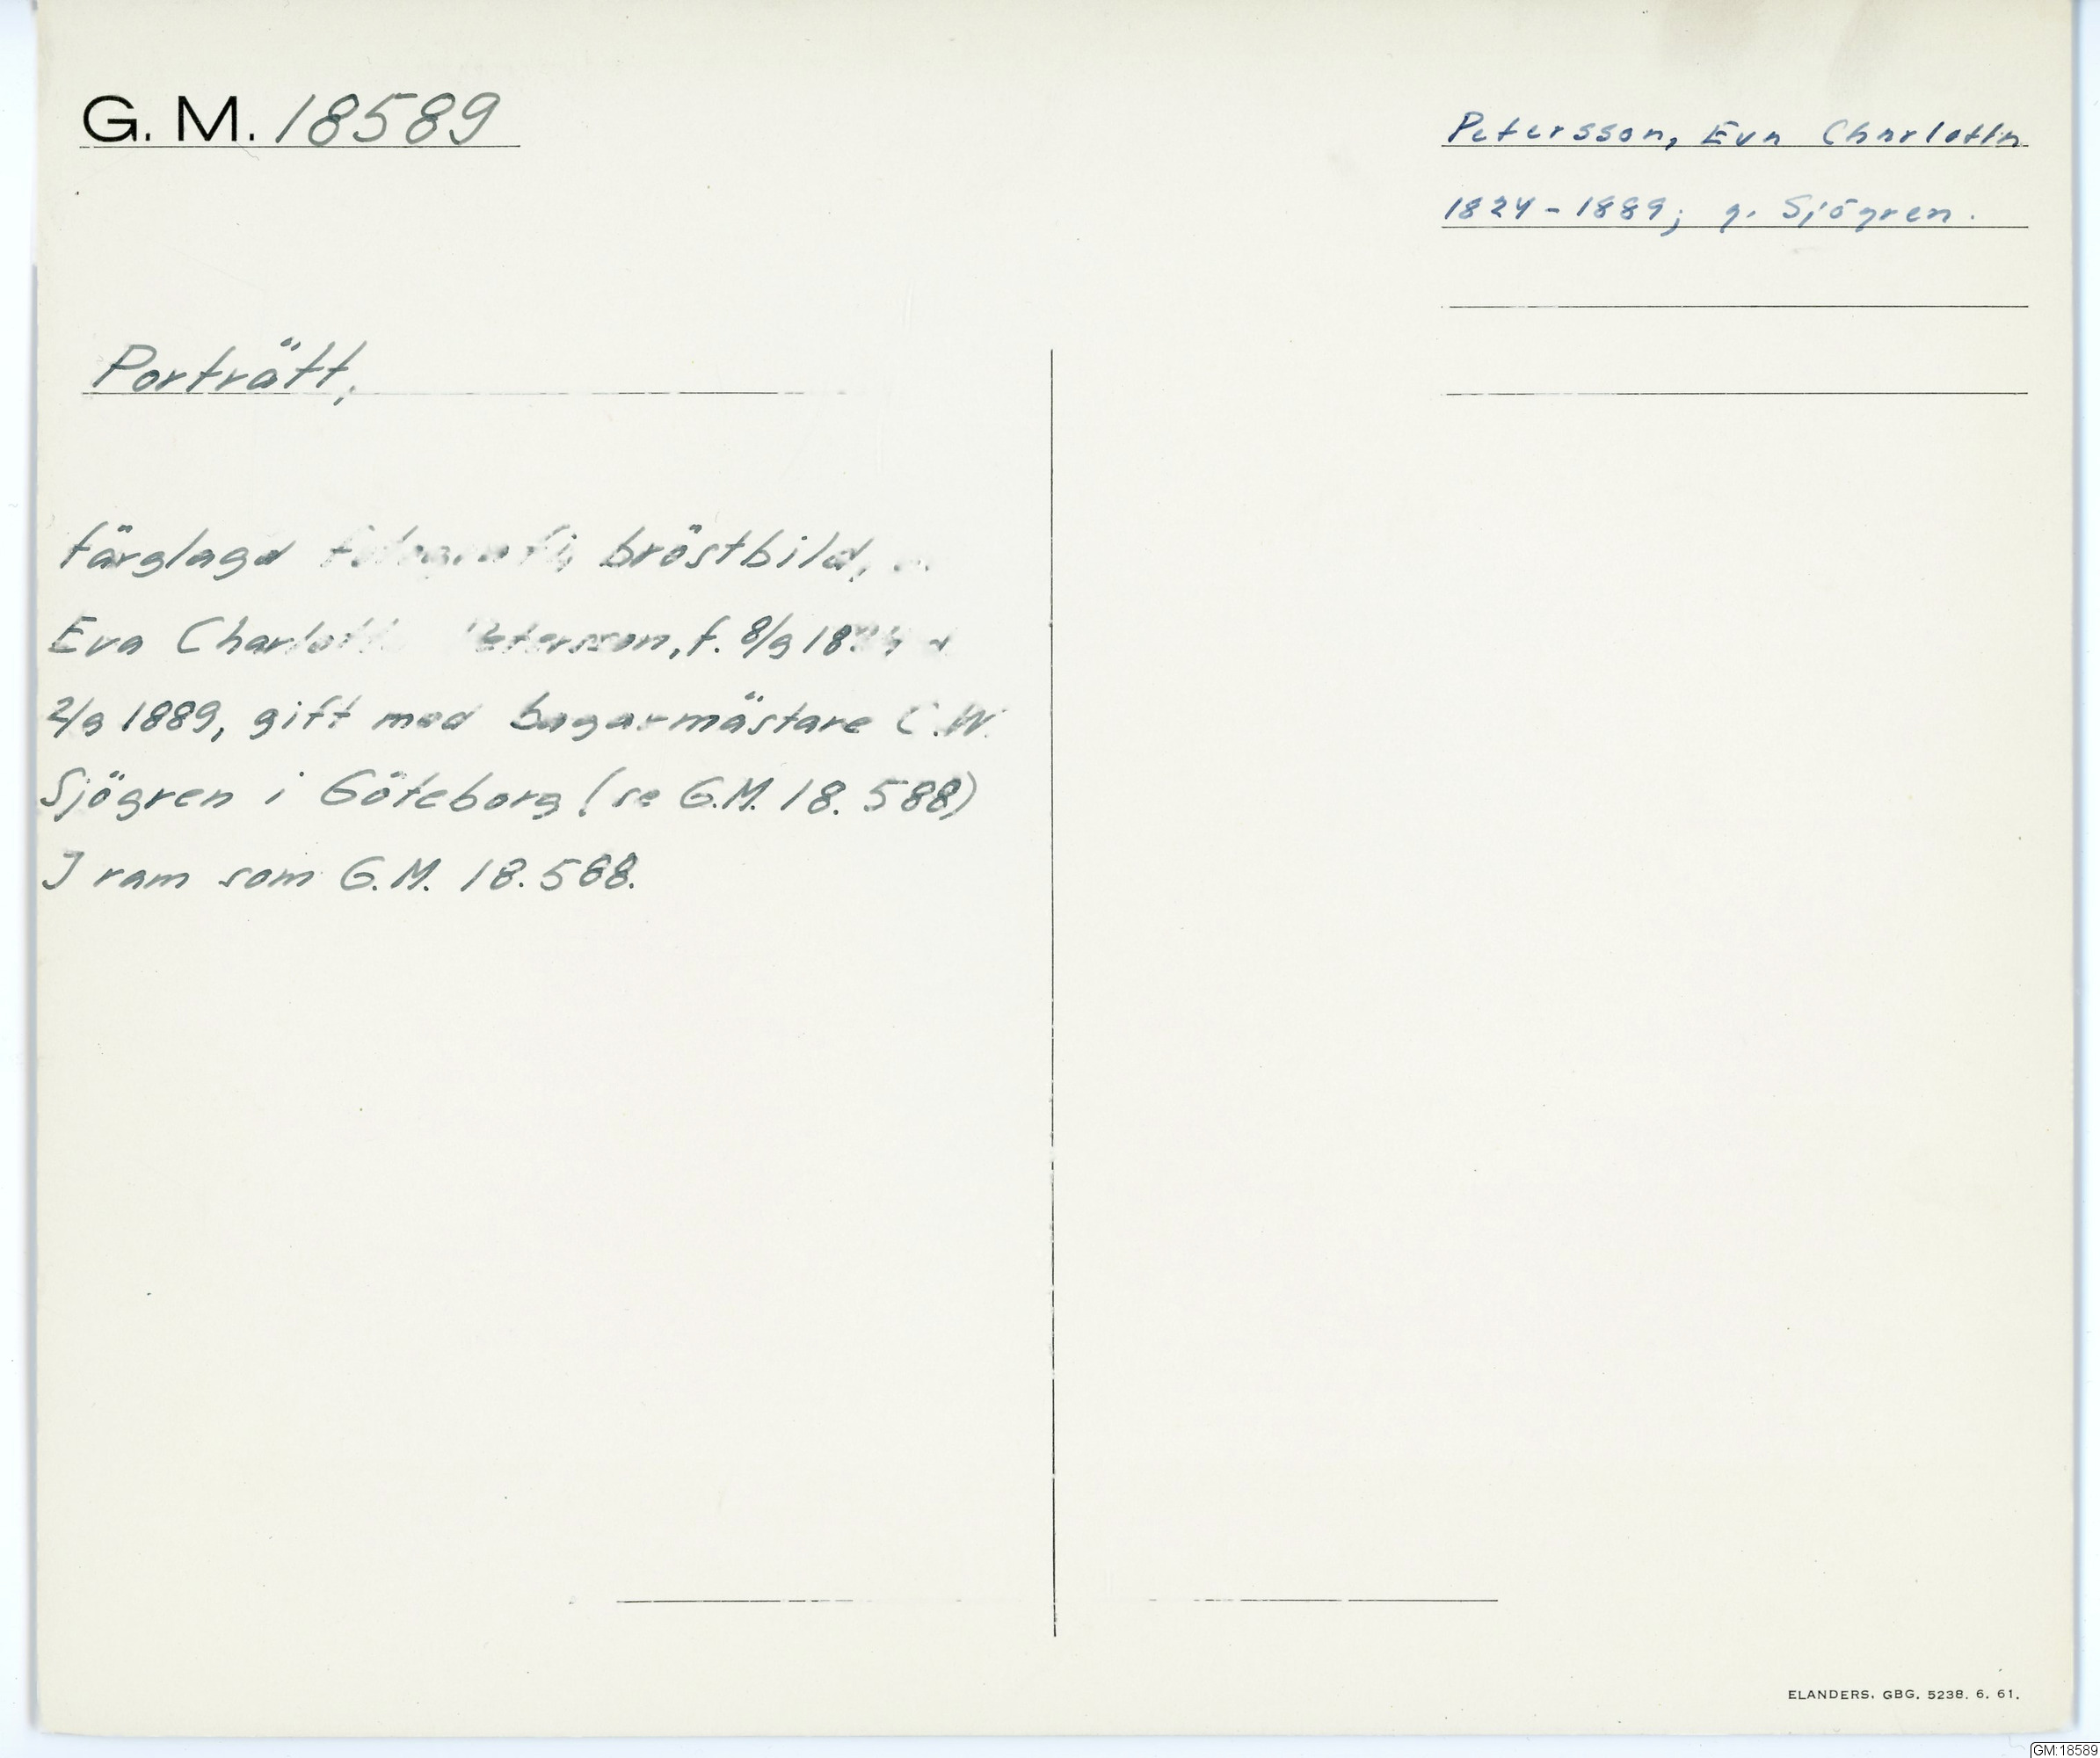 G. M. 18589
Petersson, Eva Charlotta
1824-1889; g. Sjögren.
Porträtt,
färglagd fotografi, bröstbild,
Eva Charlotta Petersson, f. 8/9 18
2/9 1889, gift med bagarmästare C.W.
Sjögren i Göteborg (se G.M. 18.588)
I ram som G.M. 18.588.
ELANDERS. GBG. 5238. 6. 61.
GM:18589